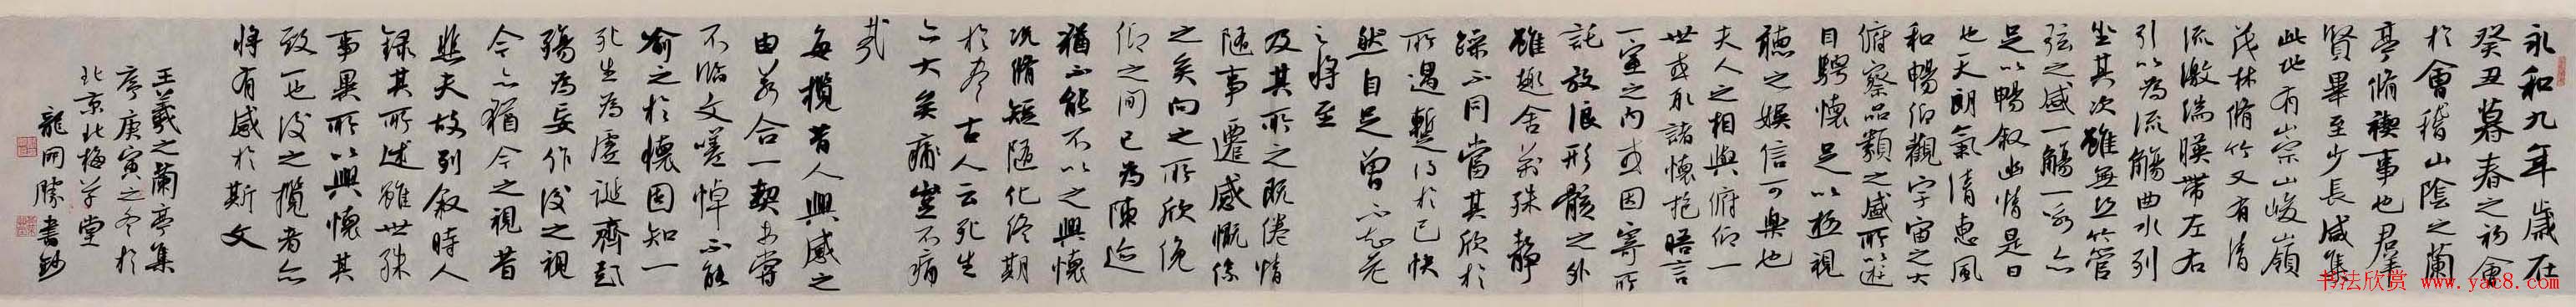 永和九年歲在
癸丑暮春之初會
於會稽山陰之蘭
亭脩禊事也群
賢畢至少長咸集
此地有崇山峻嶺
茂林脩竹又有清
流激湍暎帶左右
引以為流觴曲水列
坐其次雖無絲竹管
弦之盛一觴一詠亦
足以暢叙幽情是日
也天朗氣清惠風
和暢仰觀宇宙之大
俯察品類之盛所以遊
目騁懷足以極視
聽之娛信可樂也
夫人之相與俯仰一
世或取諸懷抱晤言
一室之內或因寄所
託放浪形骸之外
雖趣舍萬殊靜
躁不同當其欣於
所遇暫得於己快
然自足曾不知老
之將至
及其所之既倦情
隨事遷感慨係
之矣向之所欣俛
仰之間已為陳迹
猶不能不以之興懷
況脩短隨化終期
於盡古人云死生
亦大矣豈不痛
哉
每攬昔人興感之
由若合一契未嘗
不臨文嗟悼不能
喻之於懷固知一
死生為虛誕齊彭
殤為妄作後之視
今亦猶今之視昔
悲夫故列叙時人
錄其所述雖世殊
事異所以興懷其
致一也後之攬者亦
將有感於斯文
王羲之蘭亭集
序庚寅之冬於
北京北梅草堂
龍開勝書鈔
书法欣赏 www.yac8.com